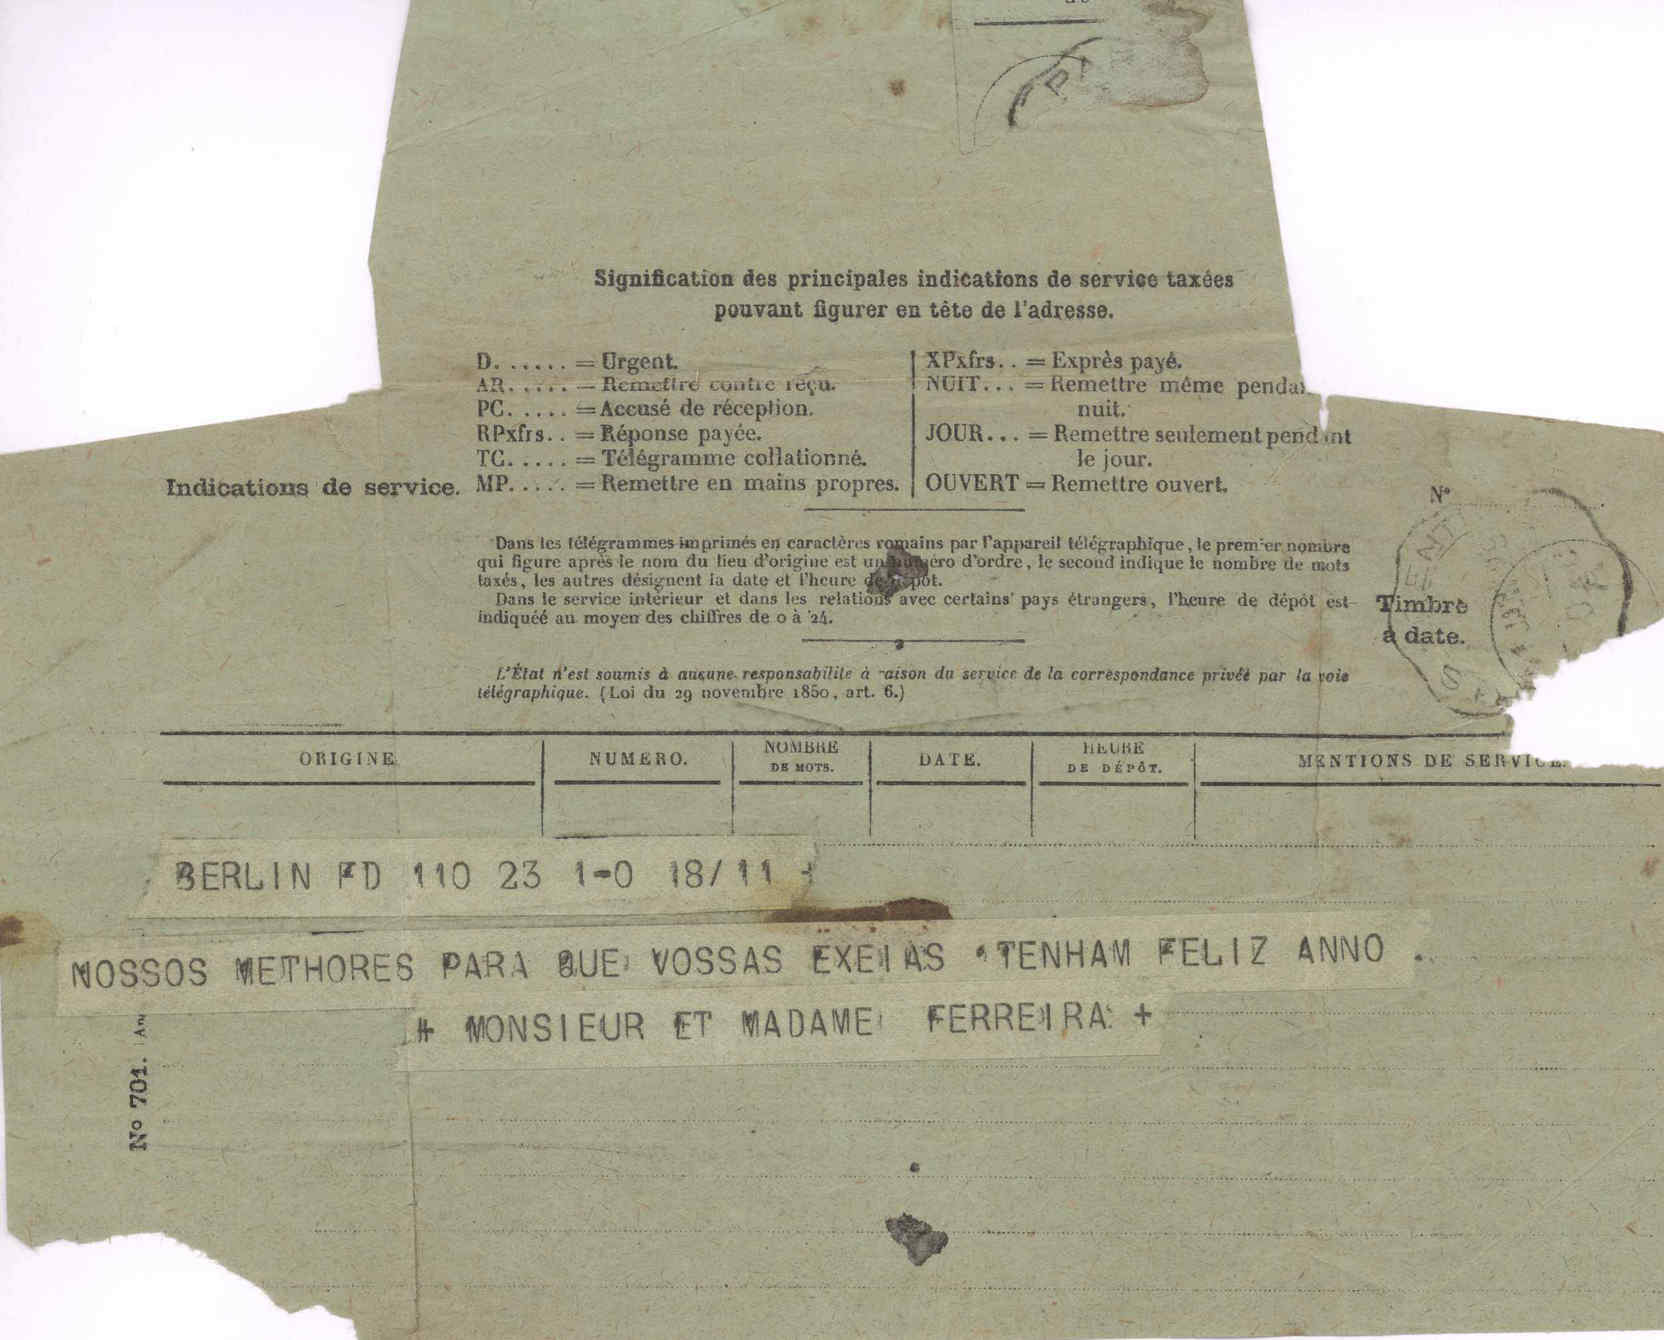 Signification des principales indications de service taxées
pouvant figurer en tête de l'adresse.
D. . . . . . = Urgent.
AR. . . . . = Remettre contre reçu.
PC. . . . . = Accusé de réception.
RPxfrs. . = Réponse payée.
TC. . . . . = Télégramme collationné.
MP. . . . . = Remettre en mains propres.
XPxfrs. . = Exprès payé.
NUIT. . . = Remettre même
nuit.
JOUR. . . = Remettre seulement pendant
le jour.
OUVERT = Remettre ouvert.
Indications de service.
Dans les télégrammes imprimés en caractères romains par l'appareil télégraphique, le premier nombre
qui figure après le nom du lieu d'origine est un numéro d'ordre, le second indique le nombre de mots
taxés, les autres désignent la date et l'heure de dépôt.
Dans le service intérieur et dans les relations avec certains pays étrangers, l'heure de dépôt est
indiquée au moyen des chiffres de 0 à 24.
L'État n'est soumis à aucune responsabilité à raison du service de la correspondance privée par la voie
télégraphique. (Loi du 29 novembre 1850, art. 6.)
N°
Timbre
à date.
ORIGINE. NUMÉRO. NOMBRE DE MOTS. DATE. HEURE DE DÉPÔT. MENTIONS DE SERVICE.
BERLIN FD 110 23 1-0 18/11
NOSSOS METHORES PARA QUE VOSSAS EXEIAS TENHAM FELIZ ANNO .
MONSIEUR ET MADAME FERREIRA +
N° 701.